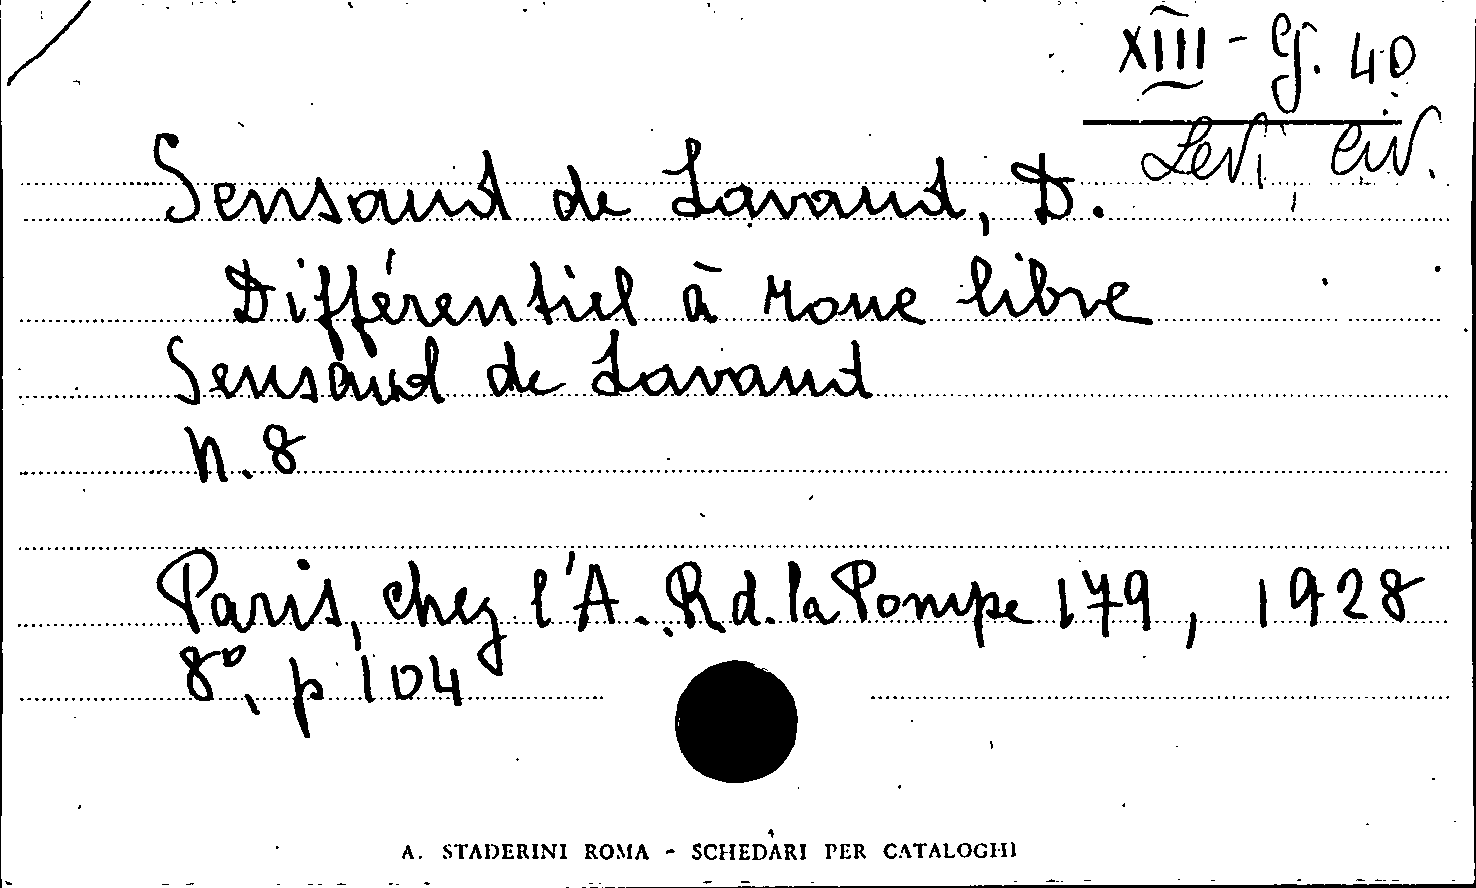 XIII - G. 40
Levi, Civ.
Sensaud de Lavaud, D.
Différentiel à roue libre
Sensaud de Lavaud
N. 8
Paris, chez l'A. R. d. la Pompe 179, 1928
8°, p 104
A. STADERINI ROMA - SCHEDARI PER CATALOGHI